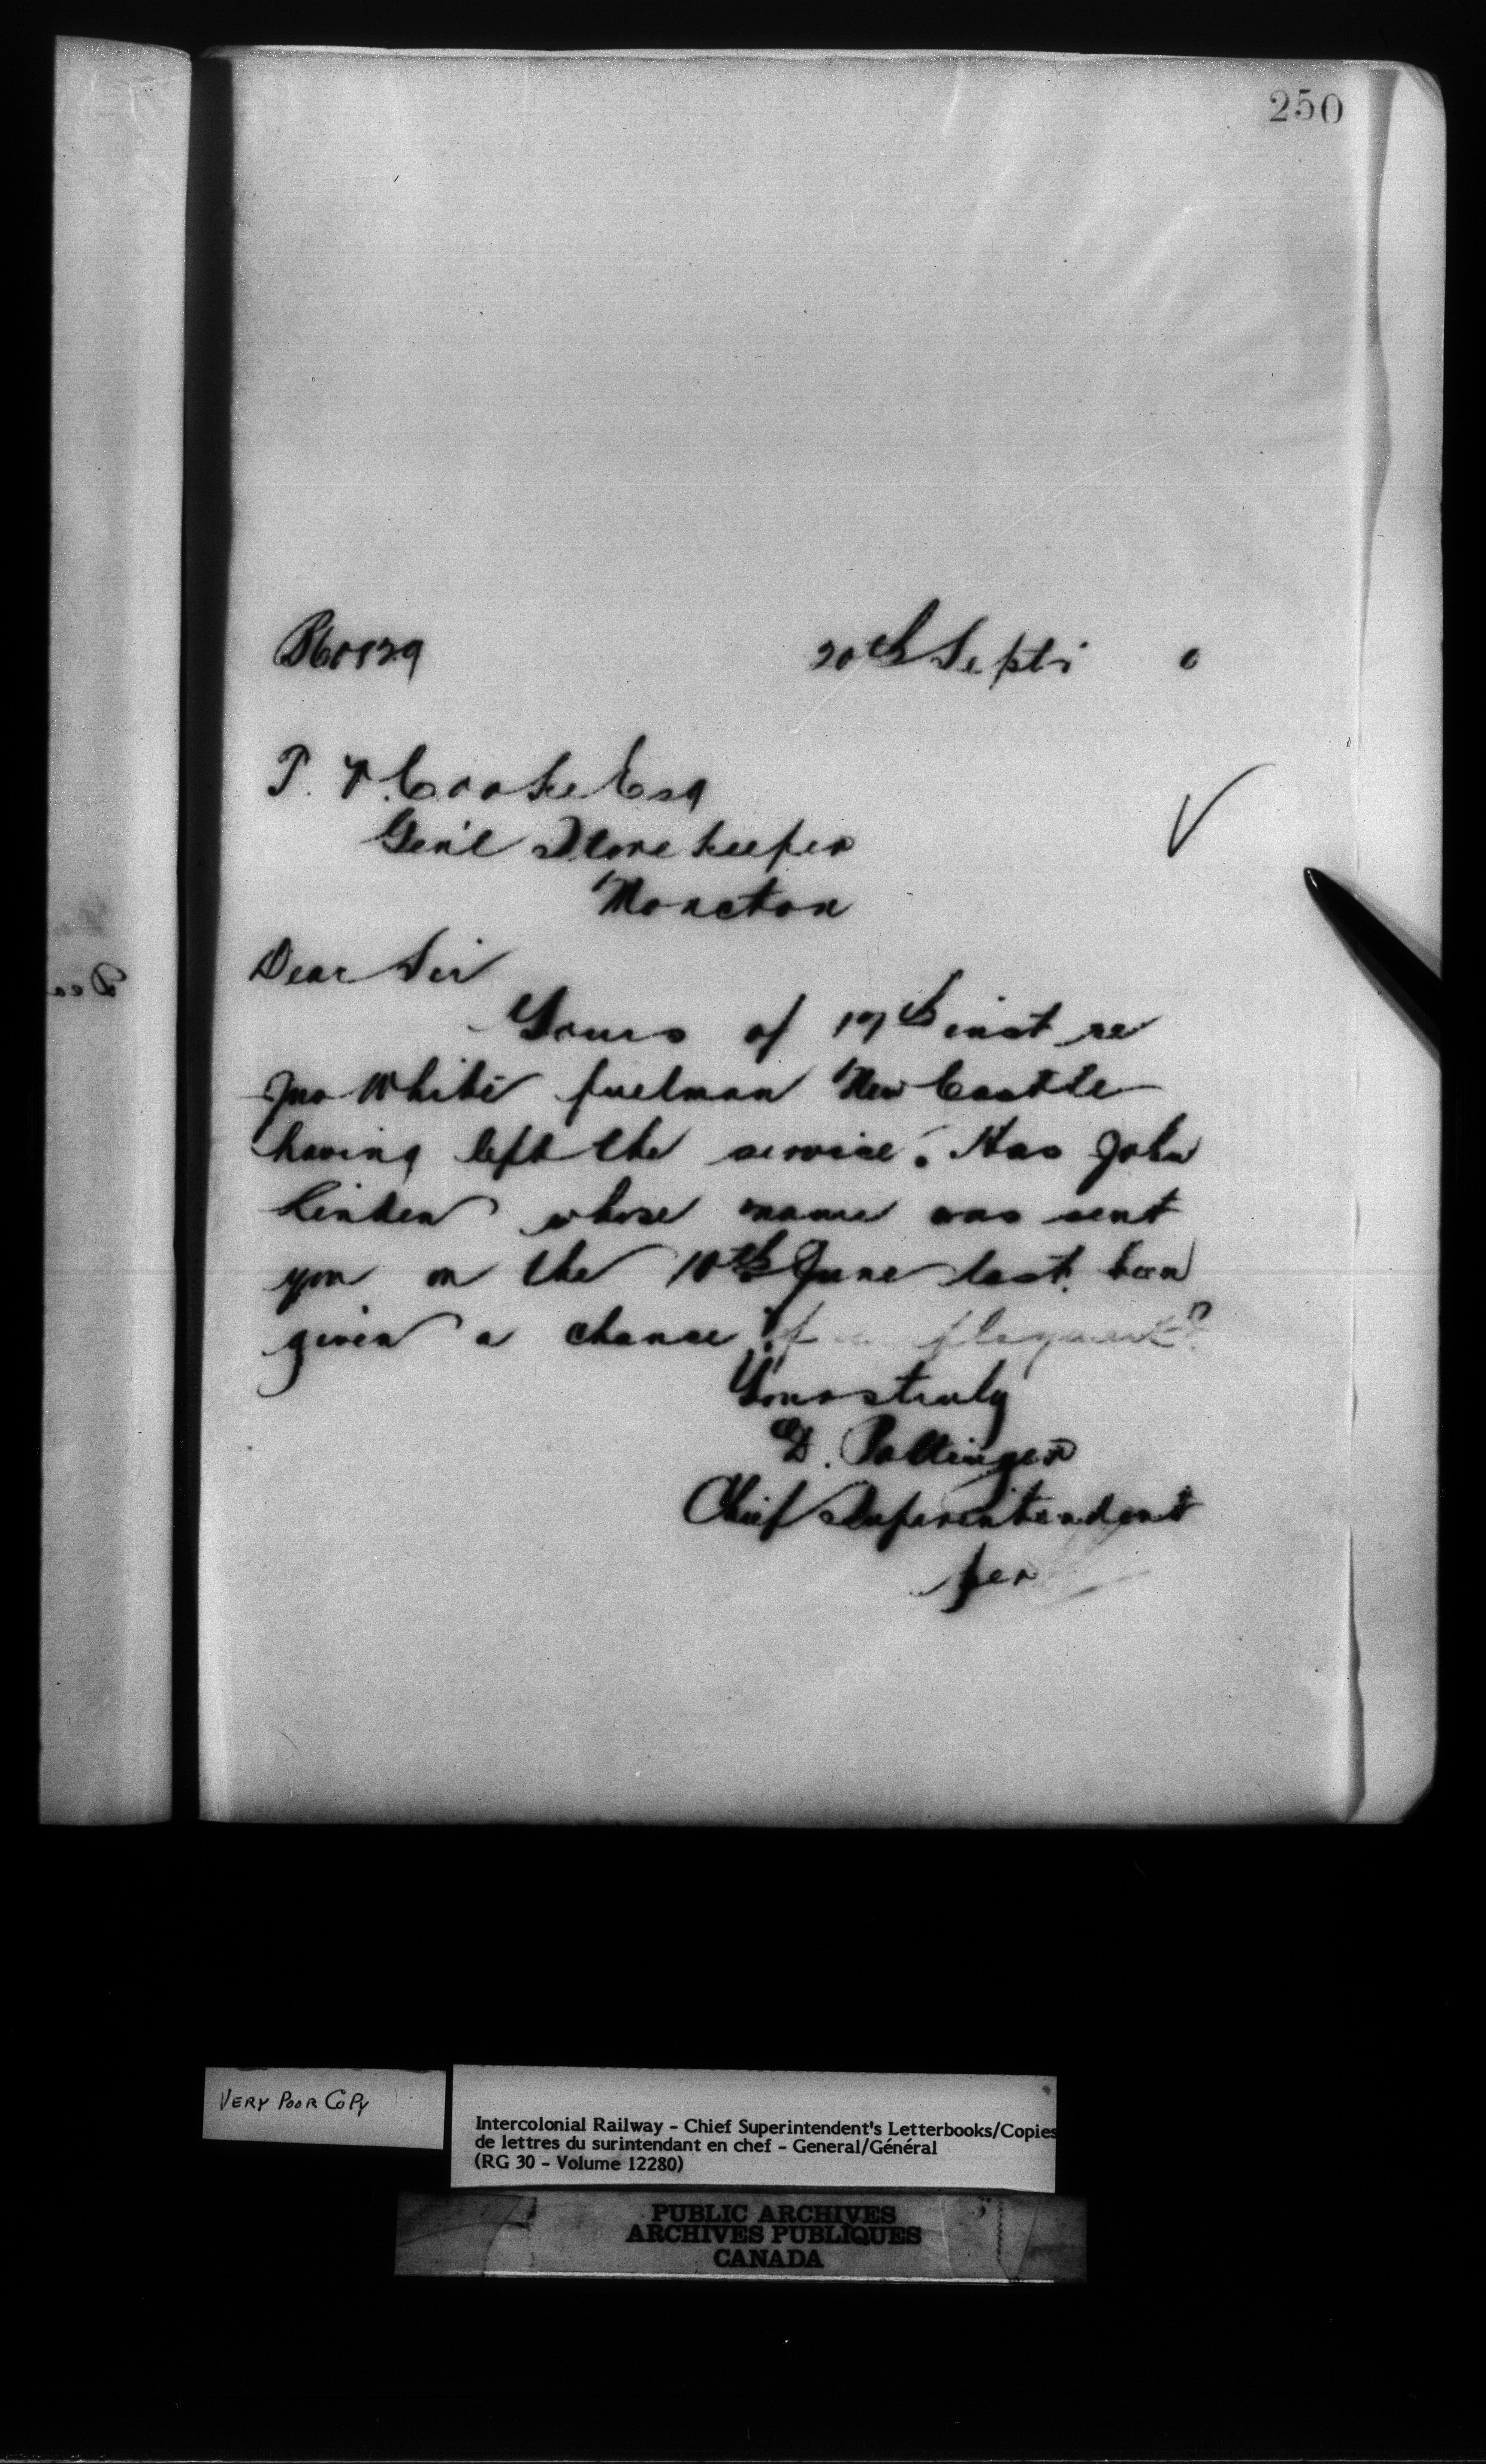 250
20th Sept 6
T. V. Cooke Esq
Gen'l Store keeper
Moncton
Dear Sir
Yours of 17th inst re
Jno White fuelman New Castle
having left the service. Has John
Linden whose name was sent
you on the 10th June last been
given a chance of employment?
Yours truly
D. Pottinger
Chief Superintendent
per
VERY POOR COPY
Intercolonial Railway - Chief Superintendent's Letterbooks/Copies
de lettres du surintendant en chef - General/Général
(RG 30 - Volume 12280)
PUBLIC ARCHIVES
ARCHIVES PUBLIQUES
CANADA